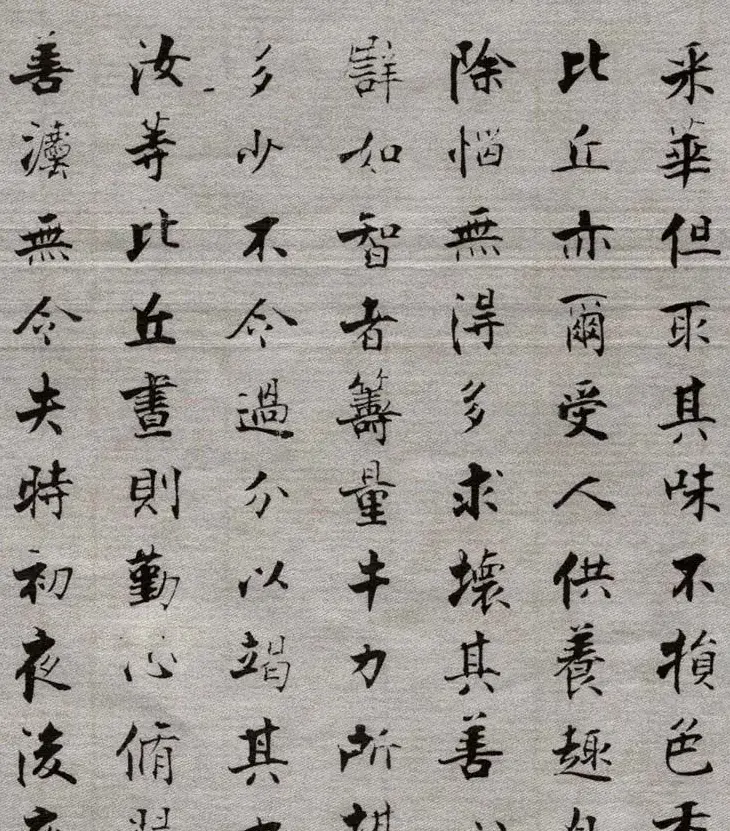 采華但取其味不損色
比丘亦爾受人供養趣
除惱無得多求壞其善
譬如智者籌量牛力所
多少不令過分以竭其
汝等比丘晝則勤心脩
善灋無令失時初夜後